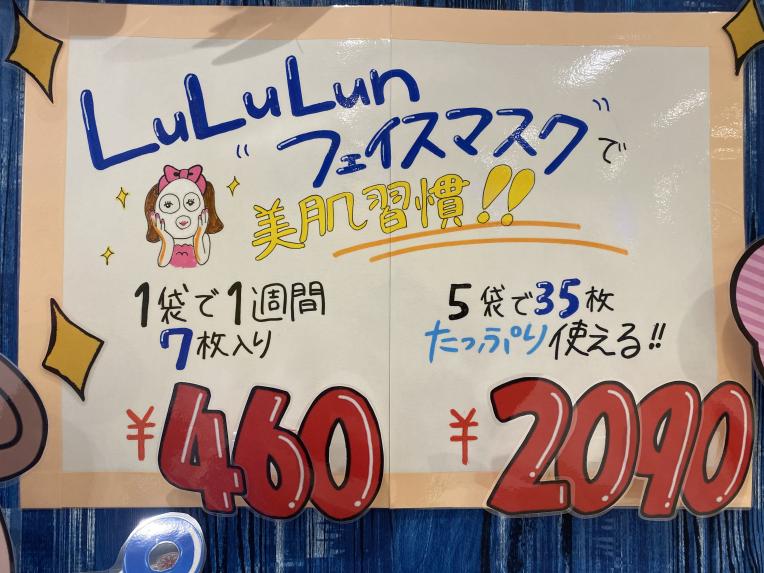 LuLuLun
"フェイスマスク"で
美肌習慣!!
1袋で1週間
7枚入り
¥460
5袋で35枚
たっぷり使える!!
¥2090